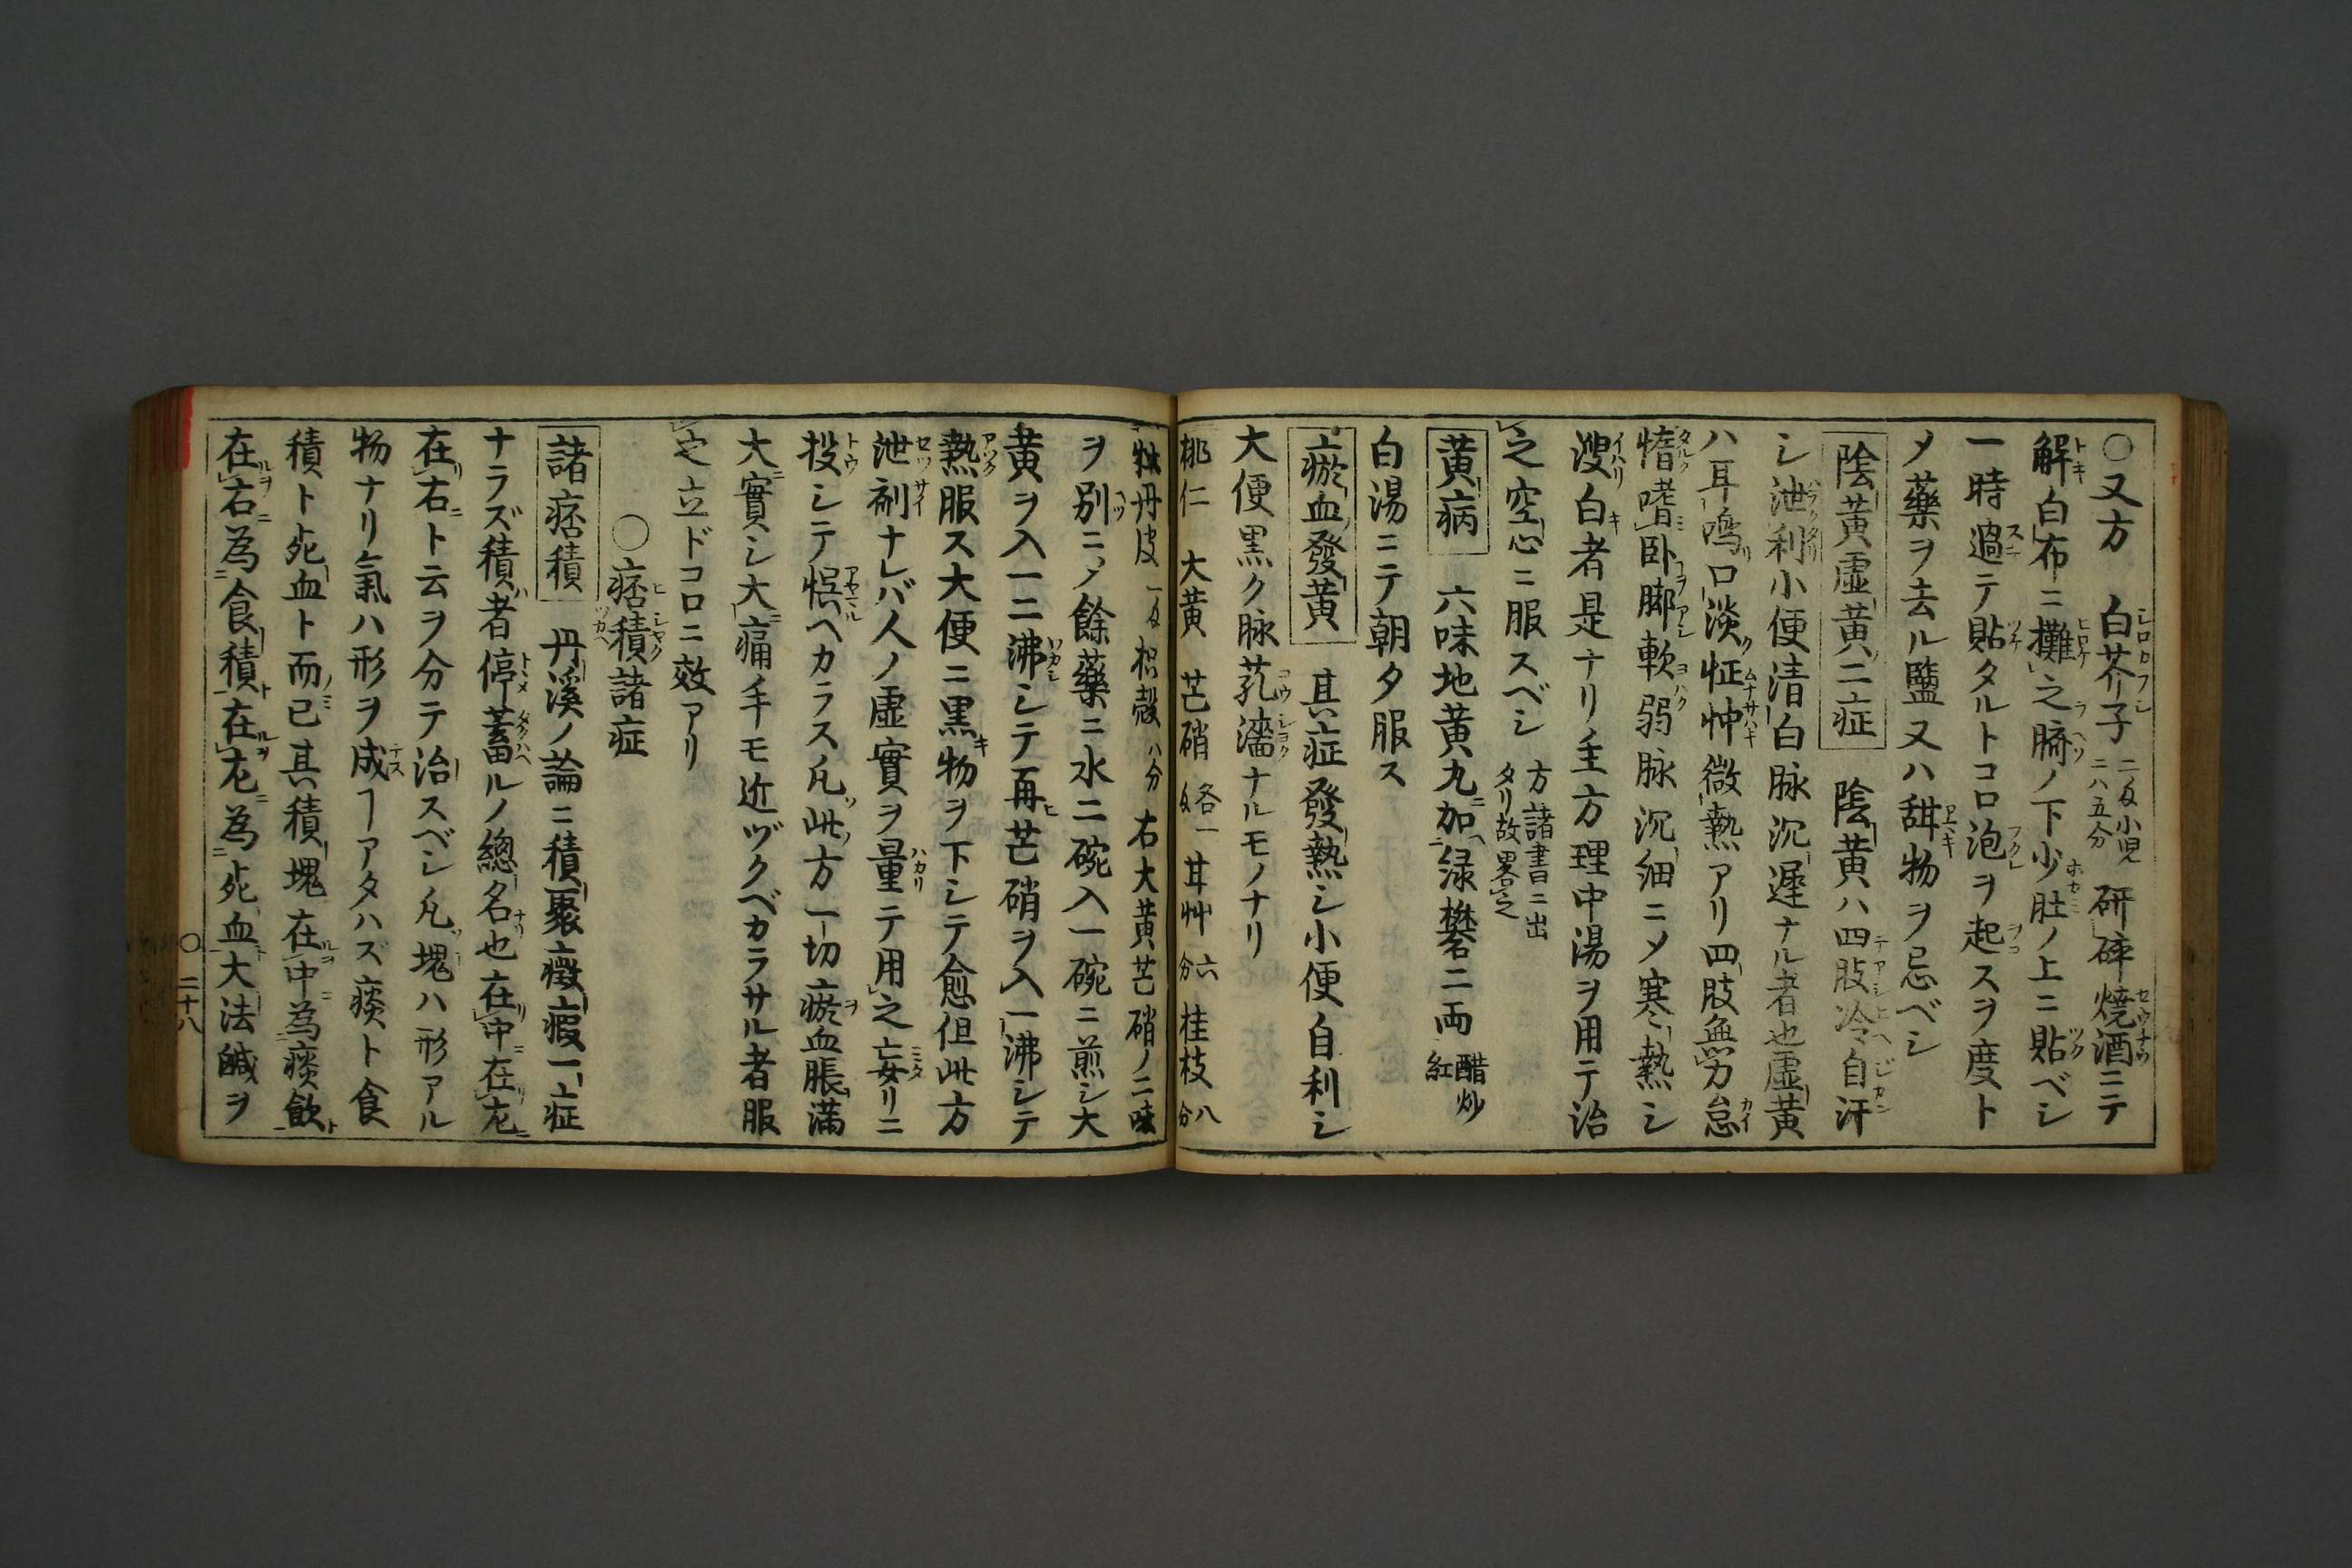 〇又方　白芥子二匁小児ニハ五分研碎焼酒ニテ
解白布ニ攤之臍ノ下少肚ノ上ニ貼ベシ
一時過テ貼タルトコロ泡ヲ起スヲ度ト
メ藥ヲ去ル鹽又ハ甜物ヲ忌ベシ
陰黄虚黄二症　陰黄ハ四肢冷自汗
シ泄利小便清白脉沉遲ナル者也虚黄
ハ耳鳴口淡怔忡微熱アリ四肢無力怠
惰嗜卧脚軟弱脉沉細ニメ寒熱シ
溲白者是ナリ主方理中湯ヲ用テ治
之空心ニ服スベシ方諸書ニ出タリ故畧之
黄病　六味地黄丸加緑礬二両醋炒紅
白湯ニテ朝夕服ス
瘀血發黄　其症發熱シ小便自利シ
大便黒ク脉芤濇ナルモノナリ
桃仁　大黄　芒硝各一匁　甘艸六分　桂枝八分
牡丹皮一匁枳殼八分右大黄芒硝ノ二味
ヲ別ニメ餘藥ニ水二碗入一碗ニ煎シ大
黄ヲ入一二沸シテ再芒硝ヲ入一沸シテ
熱服ス大便ニ黒物ヲ下シテ愈但此方
泄剤ナレバ人ノ虚實ヲ量テ用之妄リニ
投シテ悞ヘカラス凡此方一切瘀血脹満
大實シ大痛手モ近ヅクベカラサル者服
之立ドコロニ效アリ
〇痞積諸症
諸痞積　丹溪ノ論ニ積聚癥瘕一症
ナラズ積者停蓄ルノ總名也在中在左
在右ト云ヲ分テ治スベシ凡塊ハ形アル
物ナリ氣ハ形ヲ成ヿアタハズ痰ト食
積ト死血ト而已其積塊在中為痰飲
在右為食積在左為死血大法鹹ヲ
〇二十八